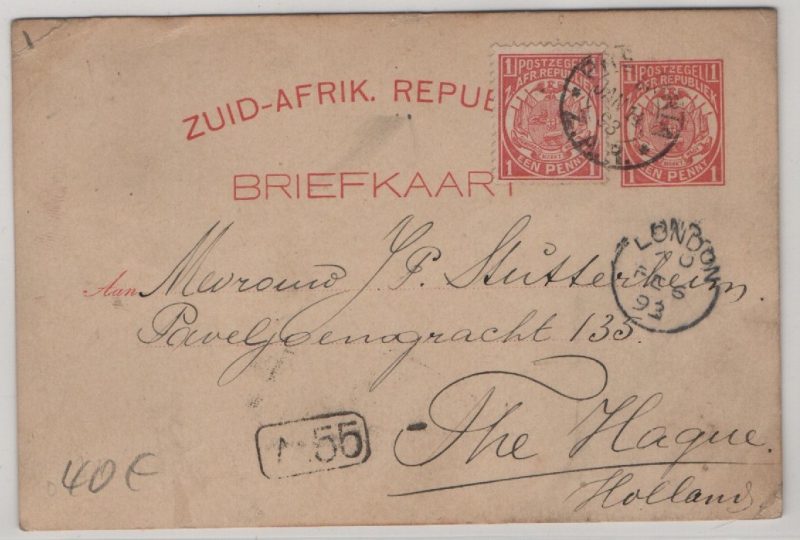 ZUID-AFRIK. REPU
BRIEFKAART
1 POSTZEGEL 1
Z. AFR. REPUBLIEK
1 EEN PENNY 1
1 POSTZEGEL 1
Z. AFR. REPUBLIEK
1 EEN PENNY 1
JAN
93
Z.A.R.
LONDON
FE 6
93
Aan Mevrouw J.P. Stutterheim.
Paveljoensgracht 135.
The Hague.
Holland
55
40 €